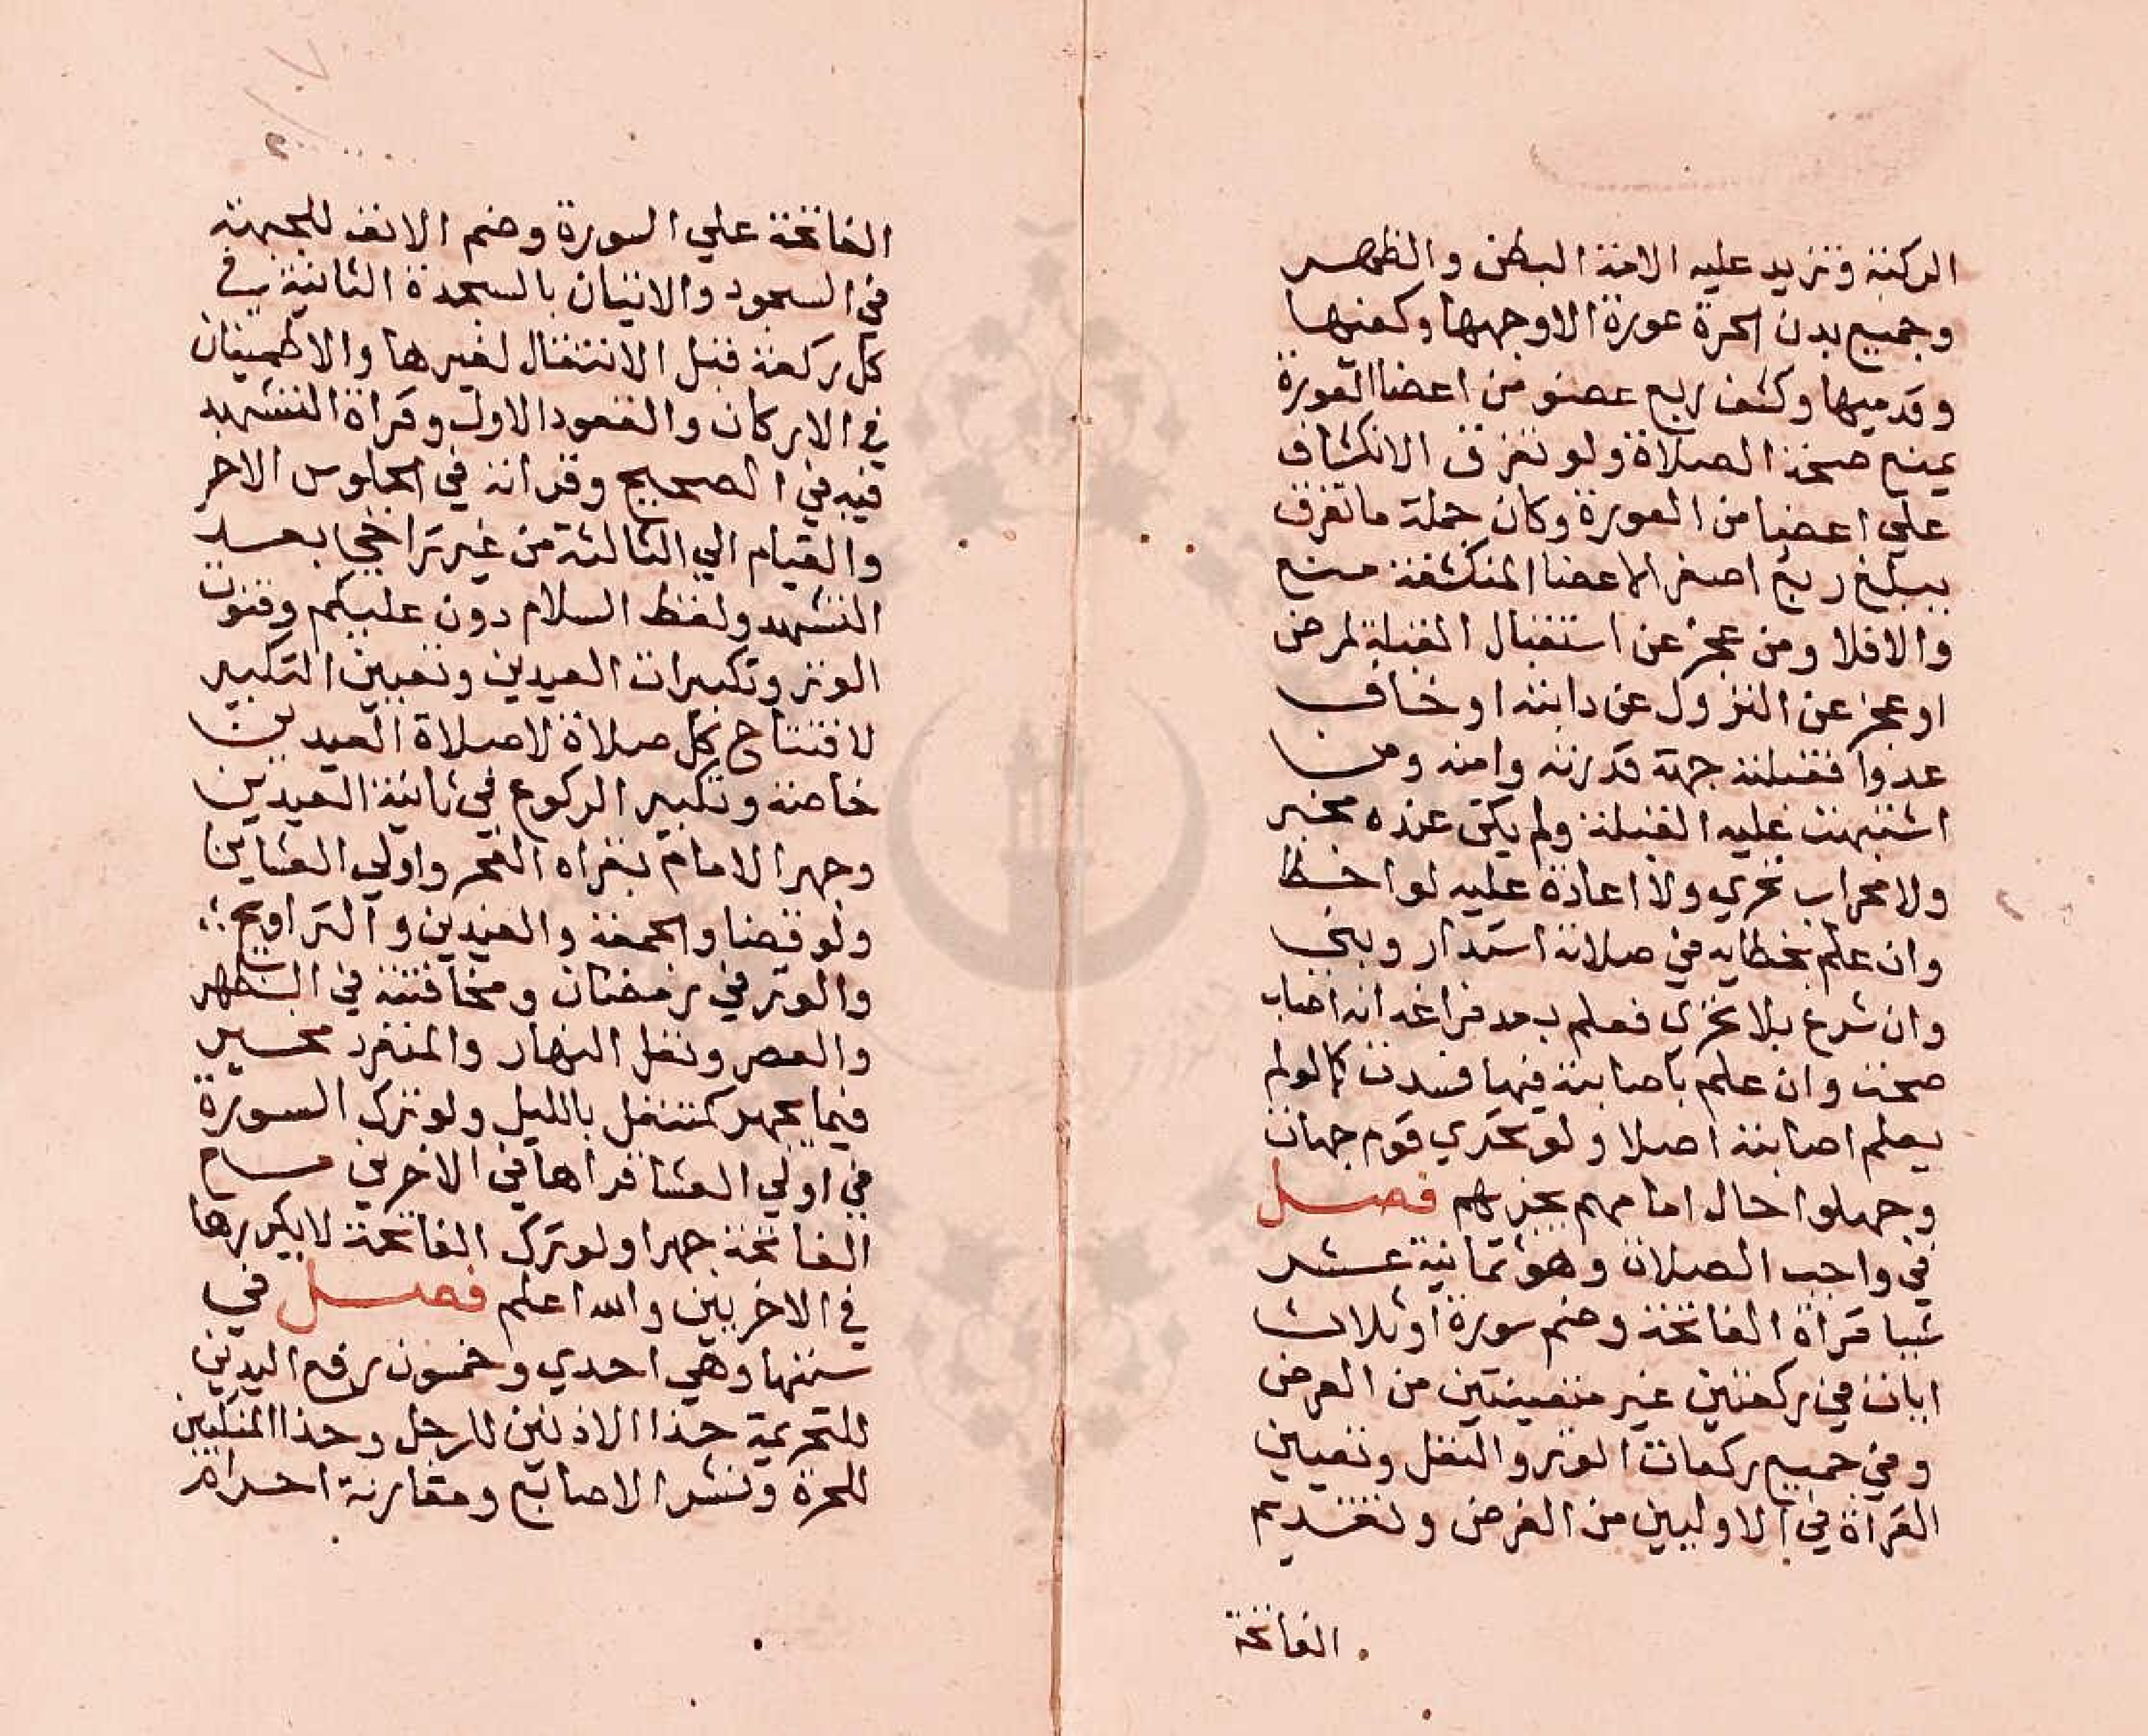 الركبة وتزيد عليه الامة البطن والظهر
وجميع بدن الحرة عورة الا وجهها وكفيها
وقدميها وكشف ربع عضو من اعضا العورة
يمنع صحة الصلاة ولو تفرق الانكشاف
علي اعضا من العورة وكان جملة ما تفرق
يبلغ ربع اصغر الاعضا المنكشفة منع
والا فلا ومن عجز عن استقبال القبلة لمرض
او عجز عن النزول عن دابته او خاف
عدوا فقبلته جهة قدرته وامنه ومن
اشتبهت عليه القبلة ولم يكن عنده مخبر
ولا محراب تحري ولا اعادة عليه لو اخطا
وان علم بخطايه في صلاته استدار وبني
وان شرع بلا تحري فعلم بعد فراغه انه اصاب
صحت وان علم باصابته فيها فسدت كما لو لم
يعلم اصابته اصلا ولو تحري قوم جهات
وجهلوا حال امامهم يجزيهم فصل
في واجب الصلاة وهو ثمانية عشر
شيا قراة الفاتحة وضم سورة او ثلاث
ايات في ركعتين غير متعينتين من الفرض
وفي جميع ركعات الوتر والنفل وتعيين
القراة في الاوليين من الفرض وتقديم
الفاتحة
الفاتحة علي السورة وضم الانف للجبهة
في السجود والاتيان بالسجدة الثانية في
كل ركعة قبل الانتقال لغيرها والاطمينان
في الاركان والقعود الاول وقراة التشهد
فيه في الصحيح وقراته في الجلوس الاخر
والقيام الي الثالثة من غير تراخي بعد
التشهد ولفظ السلام دون عليكم وقنوت
الوتر وتكبيرات العيدين وتعيين التكبير
لافتتاح كل صلاة لا صلاة العيدين
خاصة وتكبير الركوع في ثانية العيدين
وجهر الامام بقراه الفجر واولي العشاين
ولو قضا والجمعة والعيدين والتراويح
والوتر في رمضان ومخافتته في الظهر
والعصر ونفل النهار والمنفرد مخير
فيما يجهر كمتنفل بالليل ولو ترك السورة
في اولي العشا قراها في الاخريي مع
الفاتحة جهرا ولو ترك الفاتحة لا يكررها
في الاخريين والله اعلم فصل في
سننها وهي احدي وخمسون رفع اليدين
للتحريمة حذا الاذنين للرجل وحذا المنكبين
للحرة ونشر الاصابع ومقارنة احرام